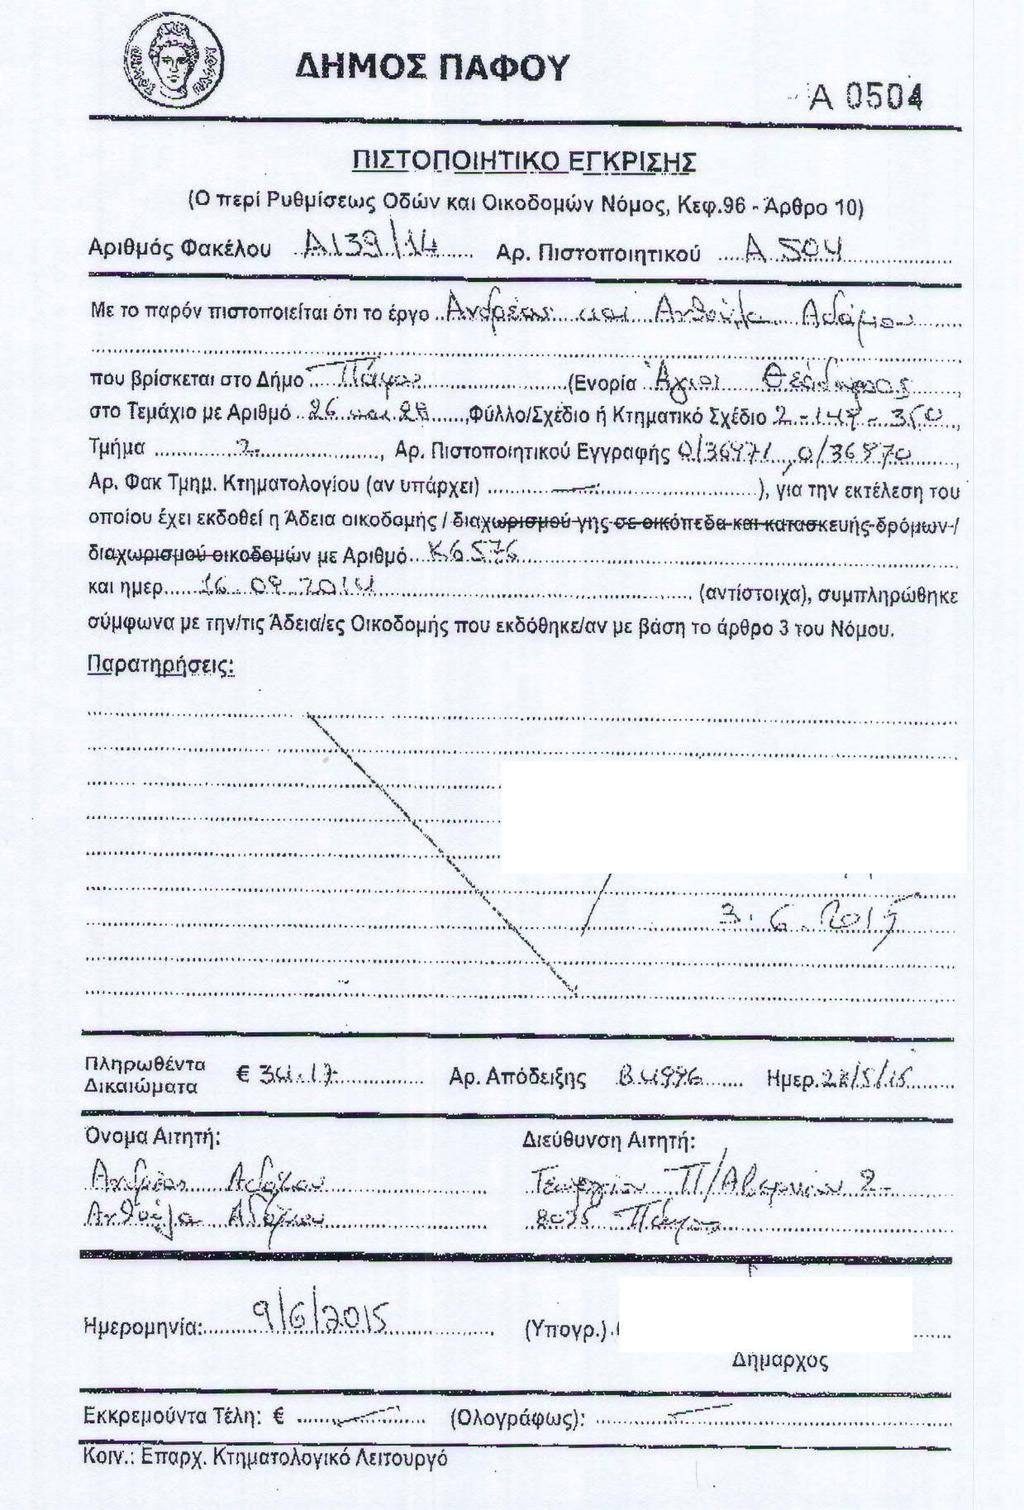 ΔΗΜΟΣ ΠΑΦΟΥ
ΔΗΜΟΣ ΠΑΦΟΥ
A 0504
ΠΙΣΤΟΠΟΙΗΤΙΚΟ ΕΓΚΡΙΣΗΣ
(Ο περί Ρυθμίσεως Οδών και Οικοδομών Νόμος, Κεφ.96 - Άρθρο 10)
Αριθμός Φακέλου A139/14 Αρ. Πιστοποιητικού A 504
Με το παρόν πιστοποιείται ότι το έργο Ανδρέας και Ανθούλα Αδάμου
που βρίσκεται στο Δήμο Πάφος (Ενορία Άγιοι Θεόδωρος
στο Τεμάχιο με Αριθμό 26 και 28, Φύλλο/Σχέδιο ή Κτηματικό Σχέδιο 2-147-350,
Τμήμα 2, Αρ. Πιστοποιητικού Εγγραφής 0/36971, 0/36970,
Αρ. Φακ Τμημ. Κτηματολογίου (αν υπάρχει) —), για την εκτέλεση του
οποίου έχει εκδοθεί η Άδεια οικοδομής / διαχωρισμού γης σε οικόπεδα και κατασκευής δρόμων /
διαχωρισμού οικοδομών με Αριθμό K6576
και ημερ. 16.09.2014 (αντίστοιχα), συμπληρώθηκε
σύμφωνα με την/τις Άδεια/ες Οικοδομής που εκδόθηκε/αν με βάση το άρθρο 3 του Νόμου.
Παρατηρήσεις:
3.6.2015
Πληρωθέντα Δικαιώματα € 34.17 Αρ. Απόδειξης B4996 Ημερ. /5/15
Όνομα Αιτητή: Διεύθυνση Αιτητή:
Ανδρέας Αδάμου Γεωργίου Π/Αβερκίου 2
Ανθούλα Αδάμου 8035 Πάφος
Ημερομηνία: 9/6/2015 (Υπογρ.)
Δήμαρχος
Εκκρεμούντα Τέλη: € — (Ολογράφως): —
Κοιν.: Επαρχ. Κτηματολογικό Λειτουργό